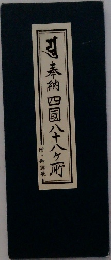 奉納四國八十八ヶ所